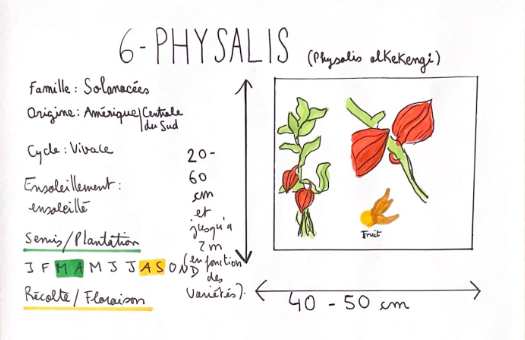 6-PHYSALIS (Physalis alkekengi)
Famille : Solanacées
Origine : Amérique/Centrale
du Sud
Cycle : Vivace
Ensoleillement :
ensoleillé
Semis/Plantation
J F M A M J J A S O N D
Récolte/Floraison
20-
60
cm
et
jusqu'à
2m
(en fonction
des
Variétés).
Fruit
40 - 50 cm